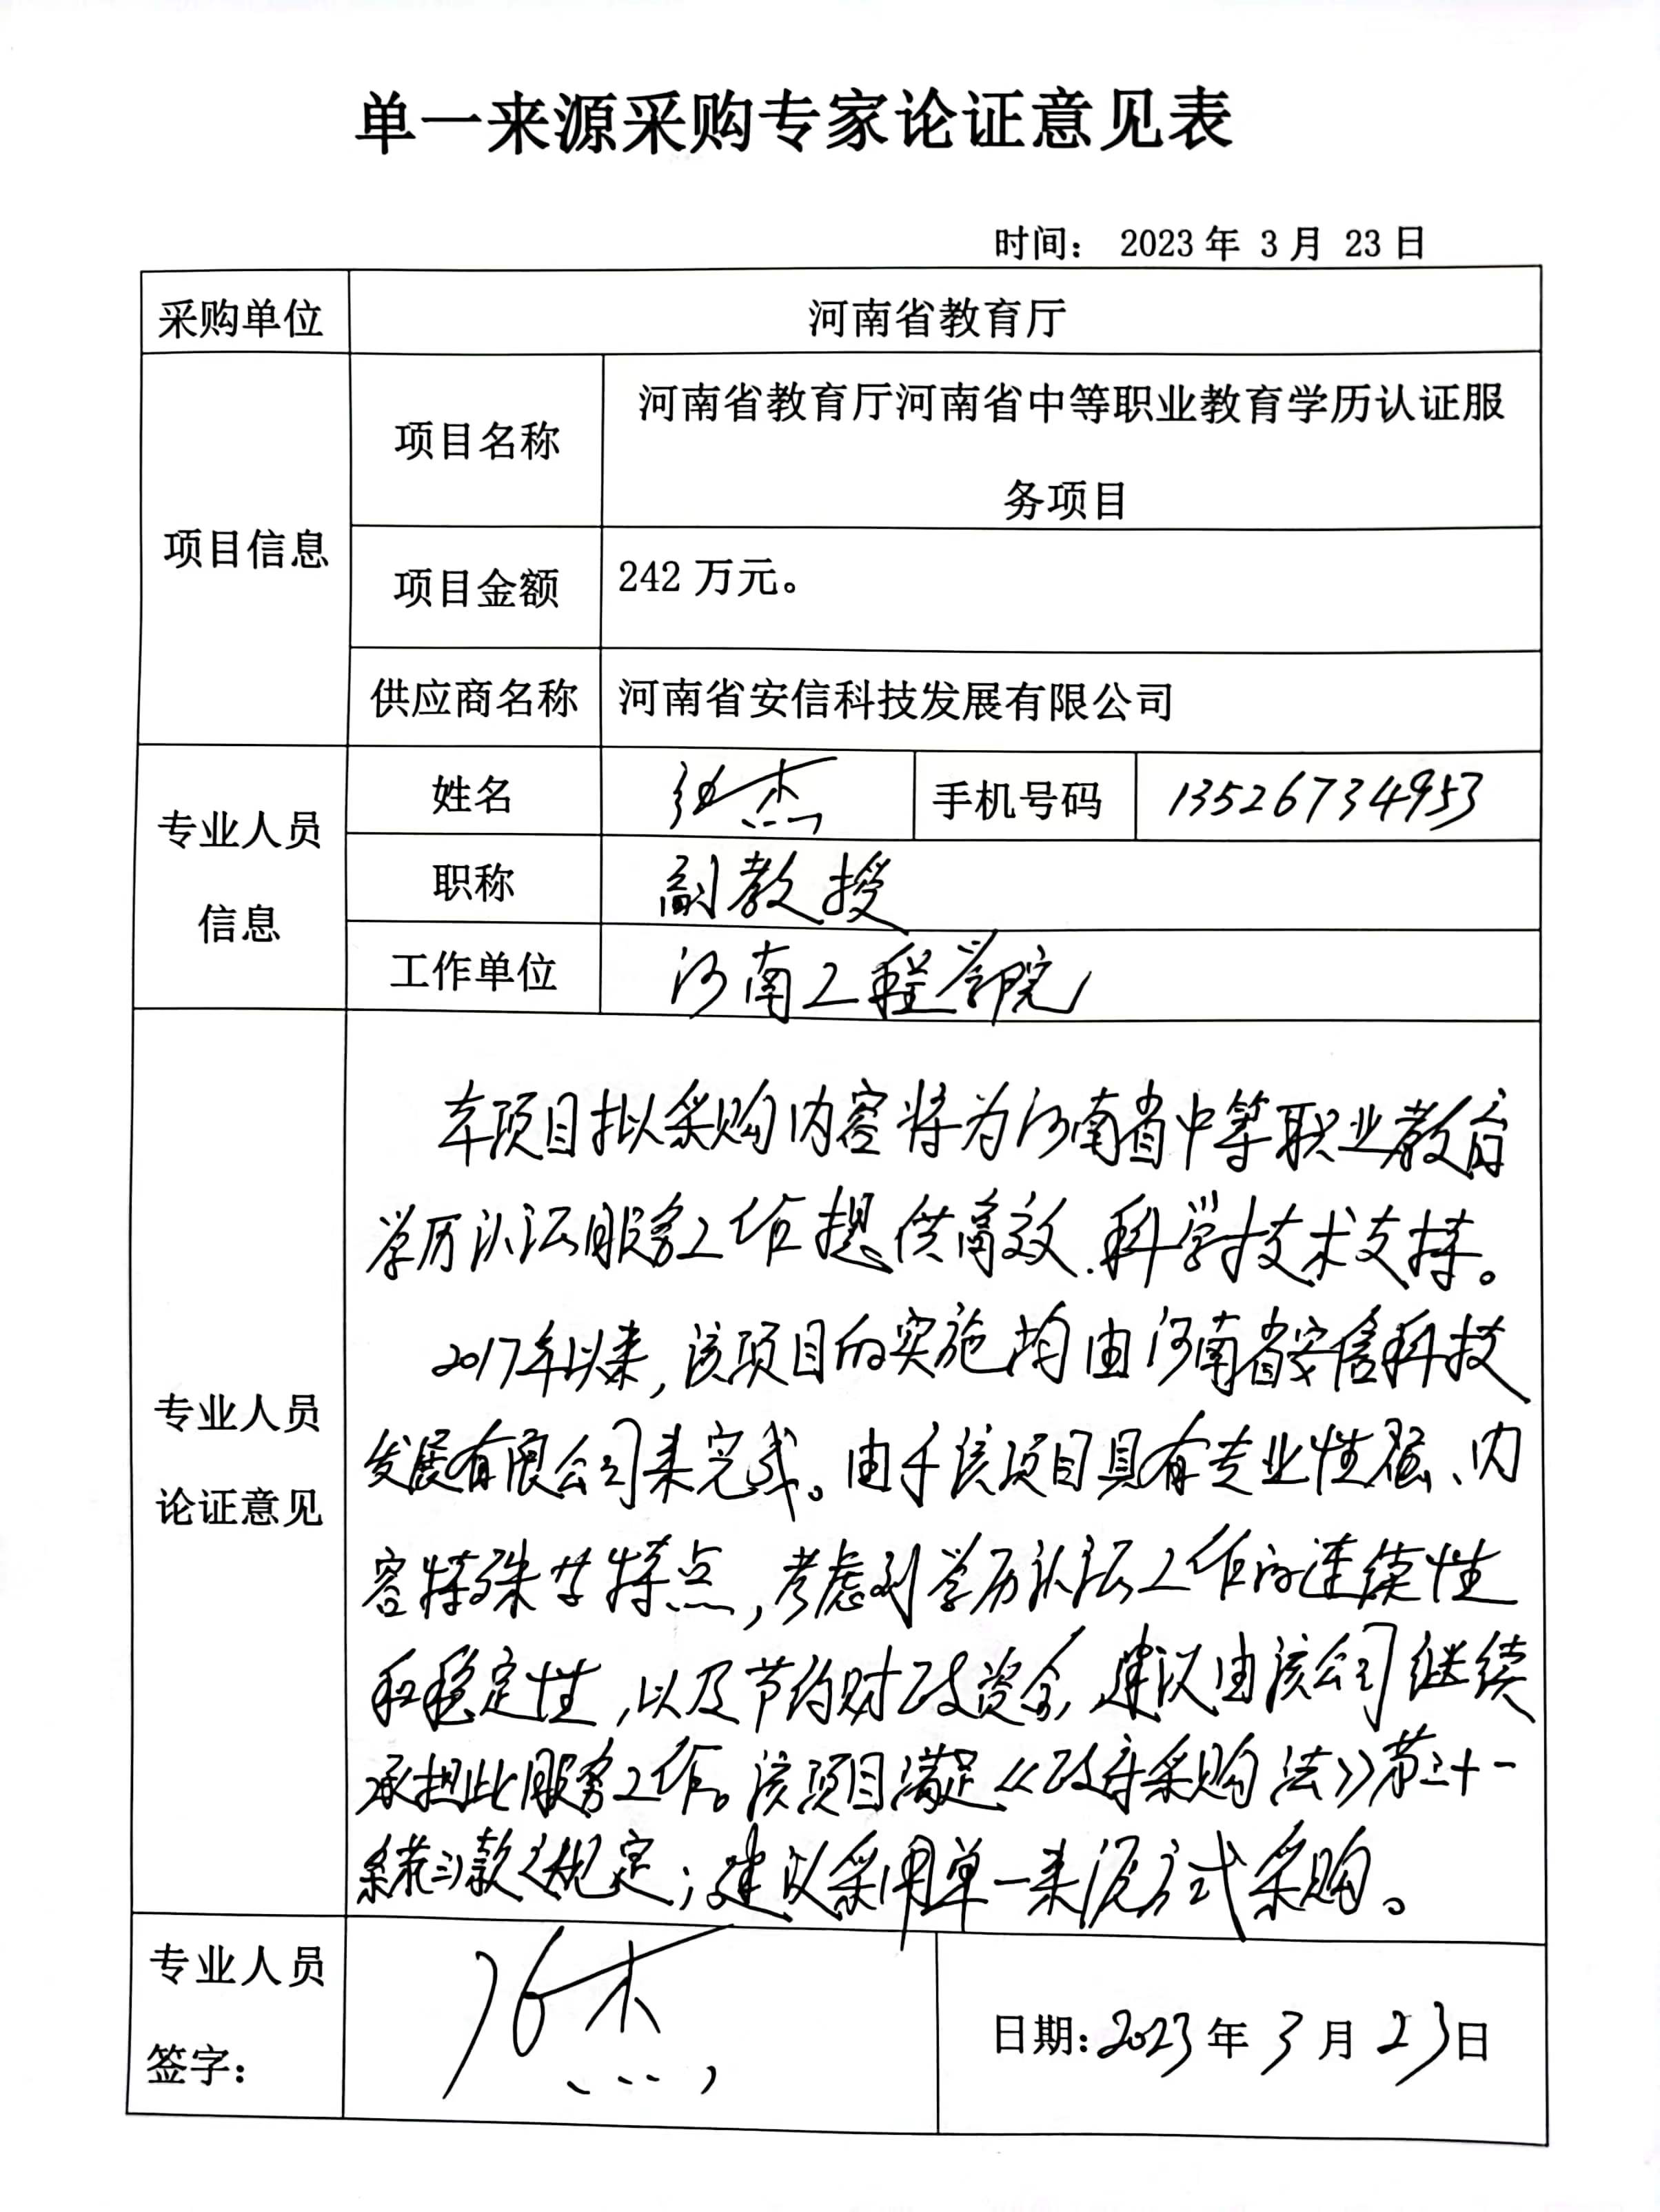 单一来源采购专家论证意见表
时间： 2023 年 3 月 23 日
采购单位 河南省教育厅
项目信息
项目名称
河南省教育厅河南省中等职业教育学历认证服
务项目
项目金额 242 万元。
供应商名称 河南省安信科技发展有限公司
专业人员
信息
姓名 杰 手机号码 13526734953
职称 副教授
工作单位 河南工程学院
专业人员
论证意见
本项目拟采购内容将为河南省中等职业教育
学历认证服务工作提供高效、科学技术支持。
2017年以来，该项目的实施均由河南省安信科技
发展有限公司来完成。由于该项目具有专业性强、内
容特殊等特点，考虑到学历认证工作的连续性
和稳定性，以及节约财政资金，建议由该公司继续
承担此服务工作。该项目满足《政府采购法》第三十一
条第 款之规定；建议采用单一来源方式采购。
专业人员
签字：
杰
日期：2023 年 3 月 23日